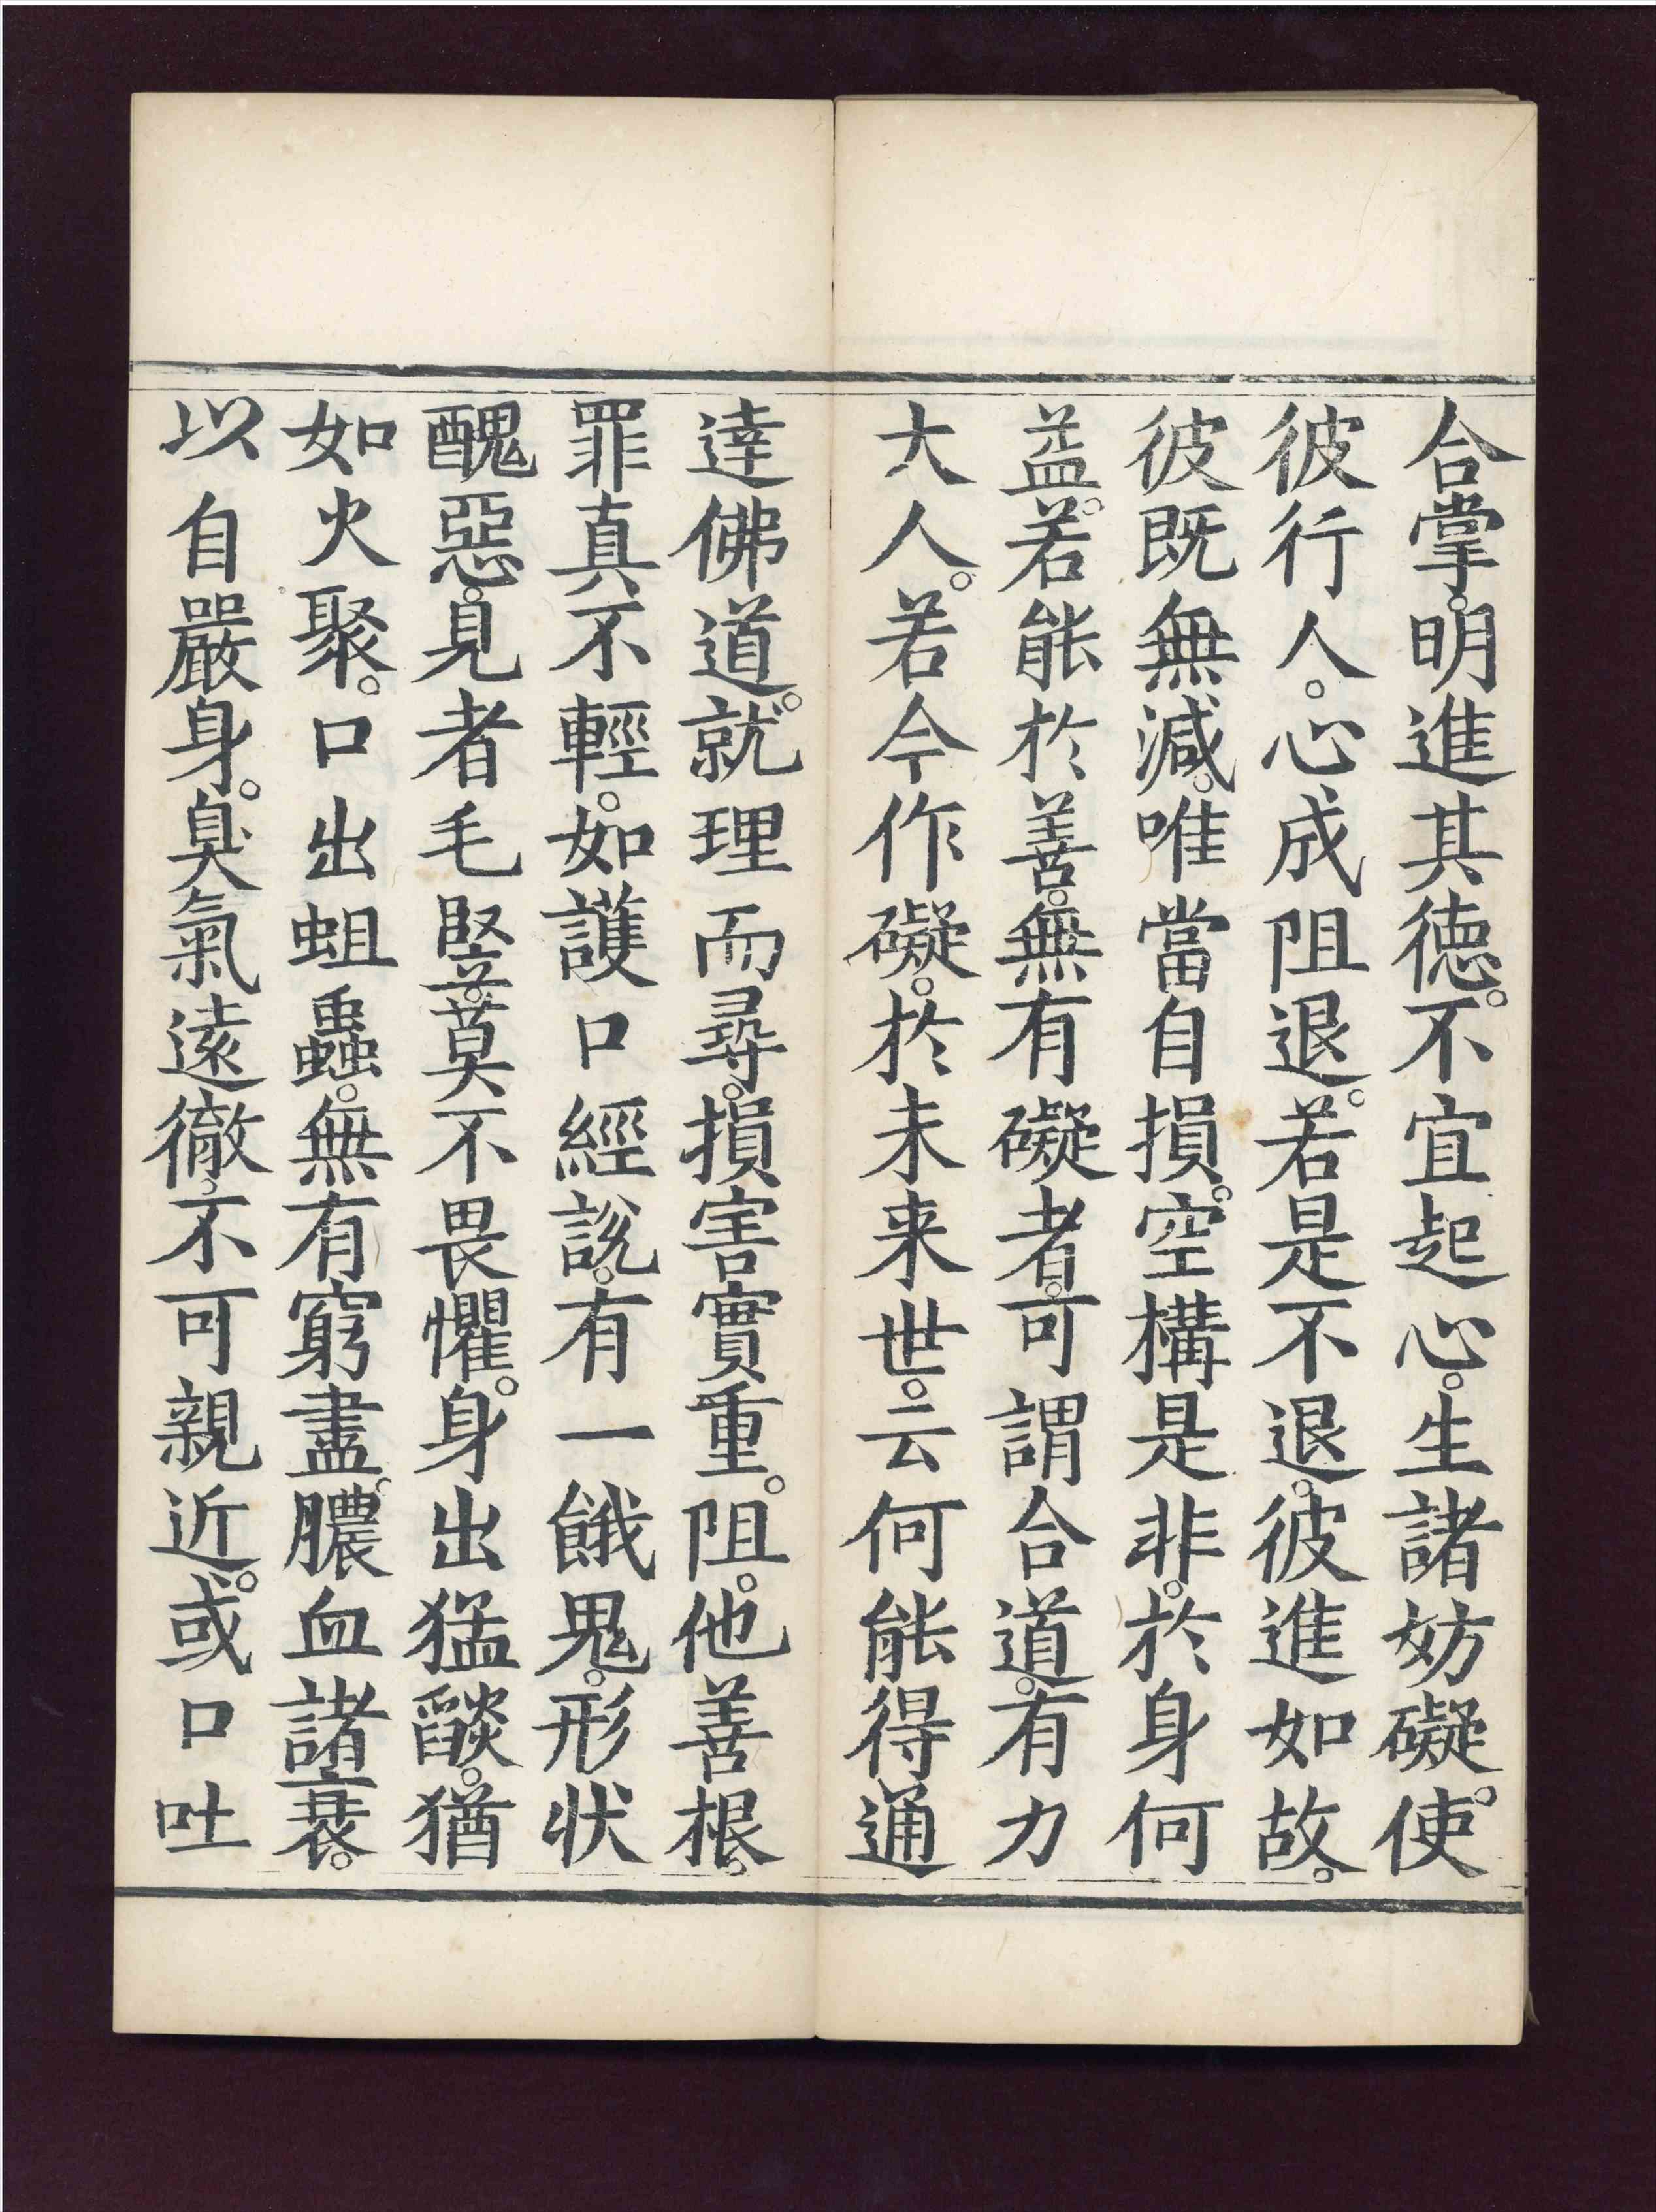 合掌。明進其德。不宜起心。生諸妨礙。使
彼行人。心成阻退。若是不退。彼進如故。
彼既無減。唯當自損。空構是非。於身何
益。若能於善。無有礙者。可謂合道。有力
大人。若今作礙。於未来世。云何能得通
達佛道。就理而尋。損害實重。阻。他善根。
罪真不輕。如護口經說。有一餓鬼。形状
醜惡。見者毛竪。莫不畏懼。身出猛燄。猶
如火聚。口出蛆蟲。無有窮盡。膿血諸衰。
以自嚴身。臭氣遠徹。不可親近。或口吐